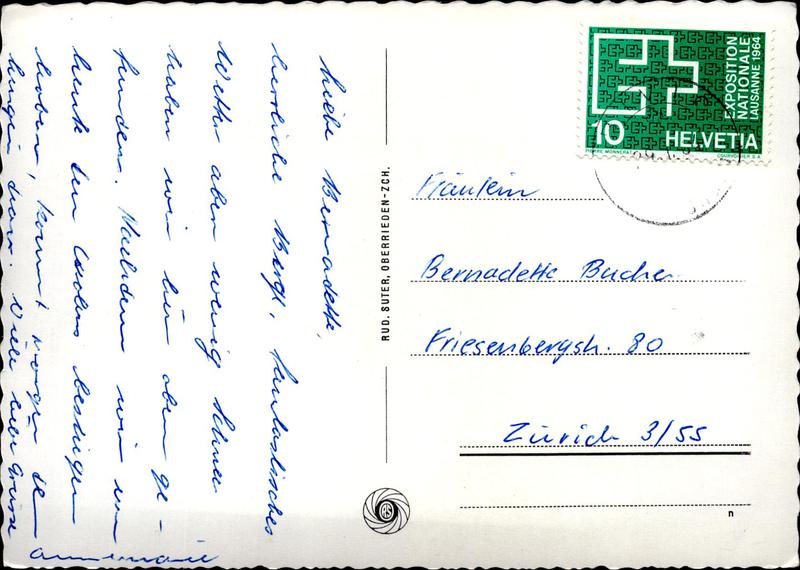 Liebe Bernadette,
herrliche Berge, fantastisches
Wetter aber wenig Schnee
haben wir hier oben ge-
funden. Nachdem wir nun
heute den bestiegen
haben, kommt morgen der
dran. Viele liebe Grüsse
Annemarie
RUD. SUTER, OBERRIEDEN-ZCH.
RS
EXPOSITION
NATIONALE
LAUSANNE 1964
10 HELVETIA
PIERRE MONNERAT
COURVOISIER S.A.
Fräulein
Bernadette Bucher
Friesenbergstr. 80
Zürich 3/55
n